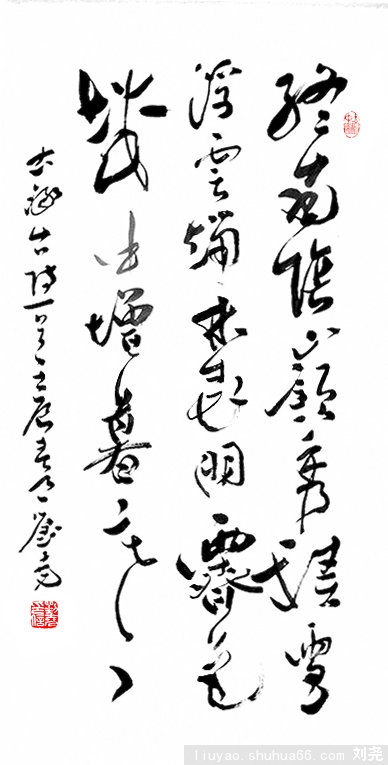 終南陰嶺秀積雪
浮雲端林表明霽色
城中增暮寒
古詩一首壬辰春劉堯
liuyao.shuhua66.com 刘尧